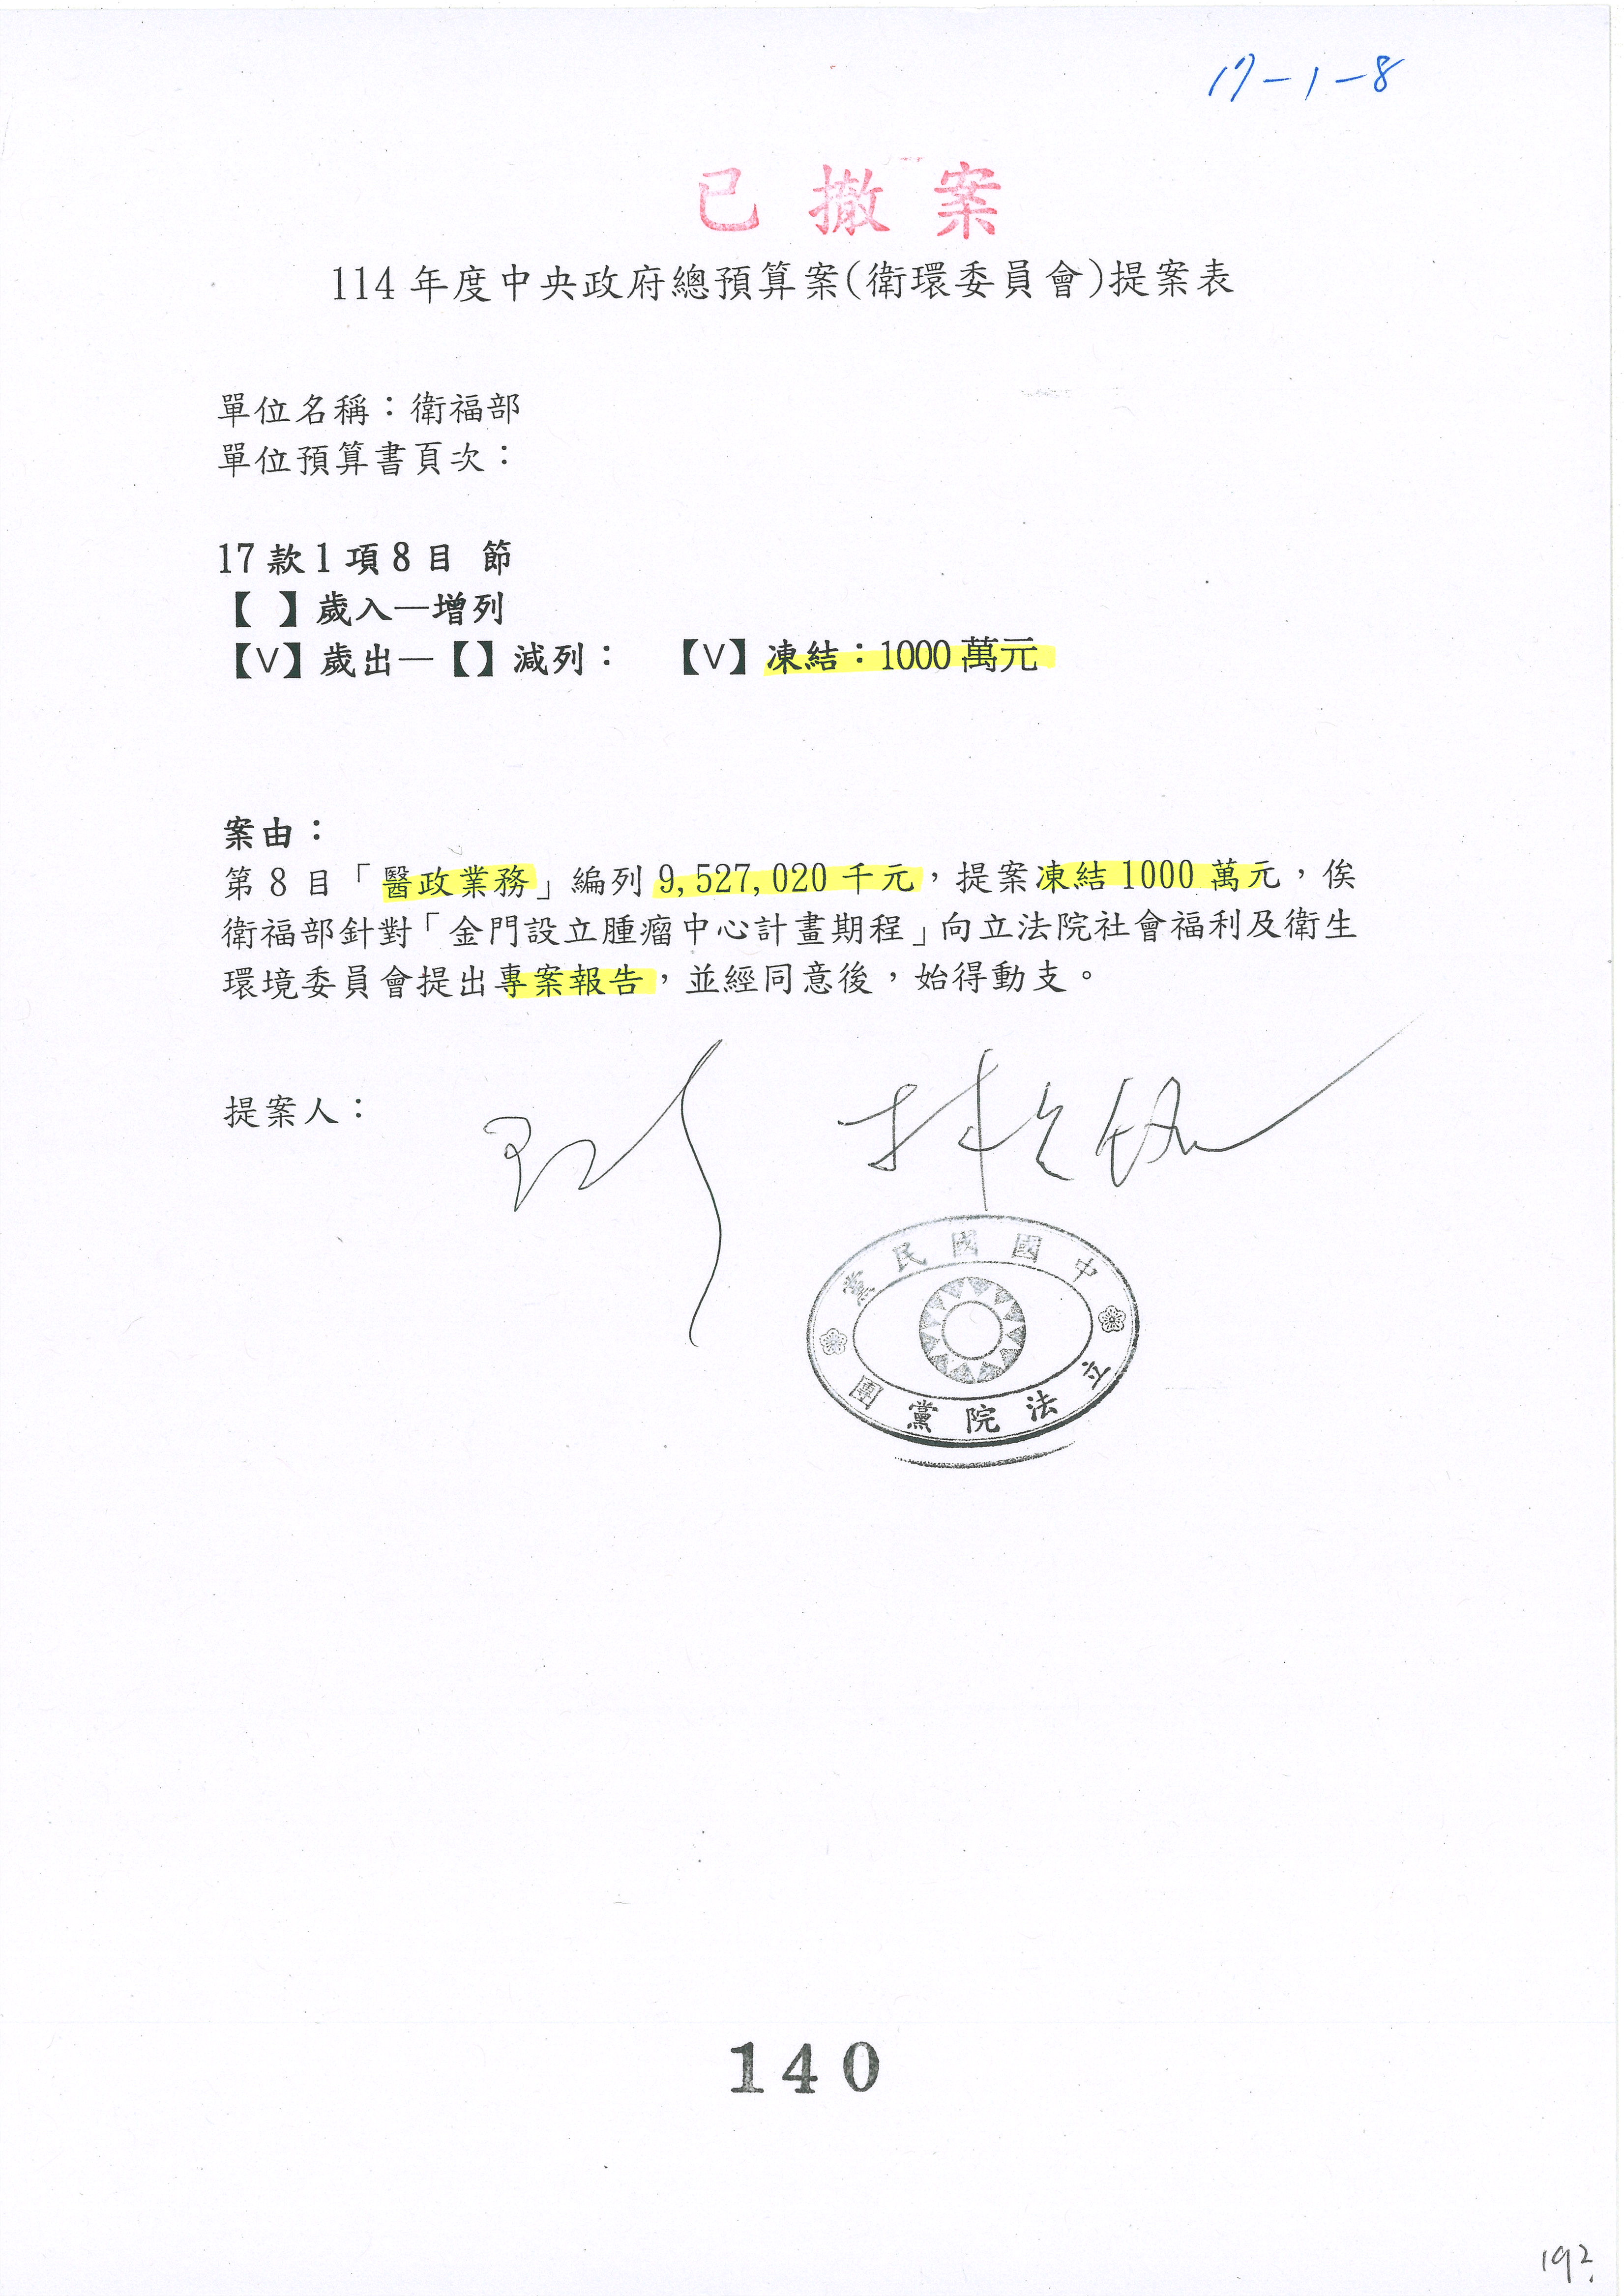 17-1-8
已撤案
114年度中央政府總預算案(衛環委員會)提案表
單位名稱：衛福部
單位預算書頁次：
17款1項8目 節
【 】歲入—增列
【V】歲出—【】減列： 【V】凍結：1000萬元
案由：
第8目「醫政業務」編列9,527,020千元，提案凍結1000萬元，俟
衛福部針對「金門設立腫瘤中心計畫期程」向立法院社會福利及衛生
環境委員會提出專案報告，並經同意後，始得動支。
提案人：
中國國民黨
立法院黨團
140